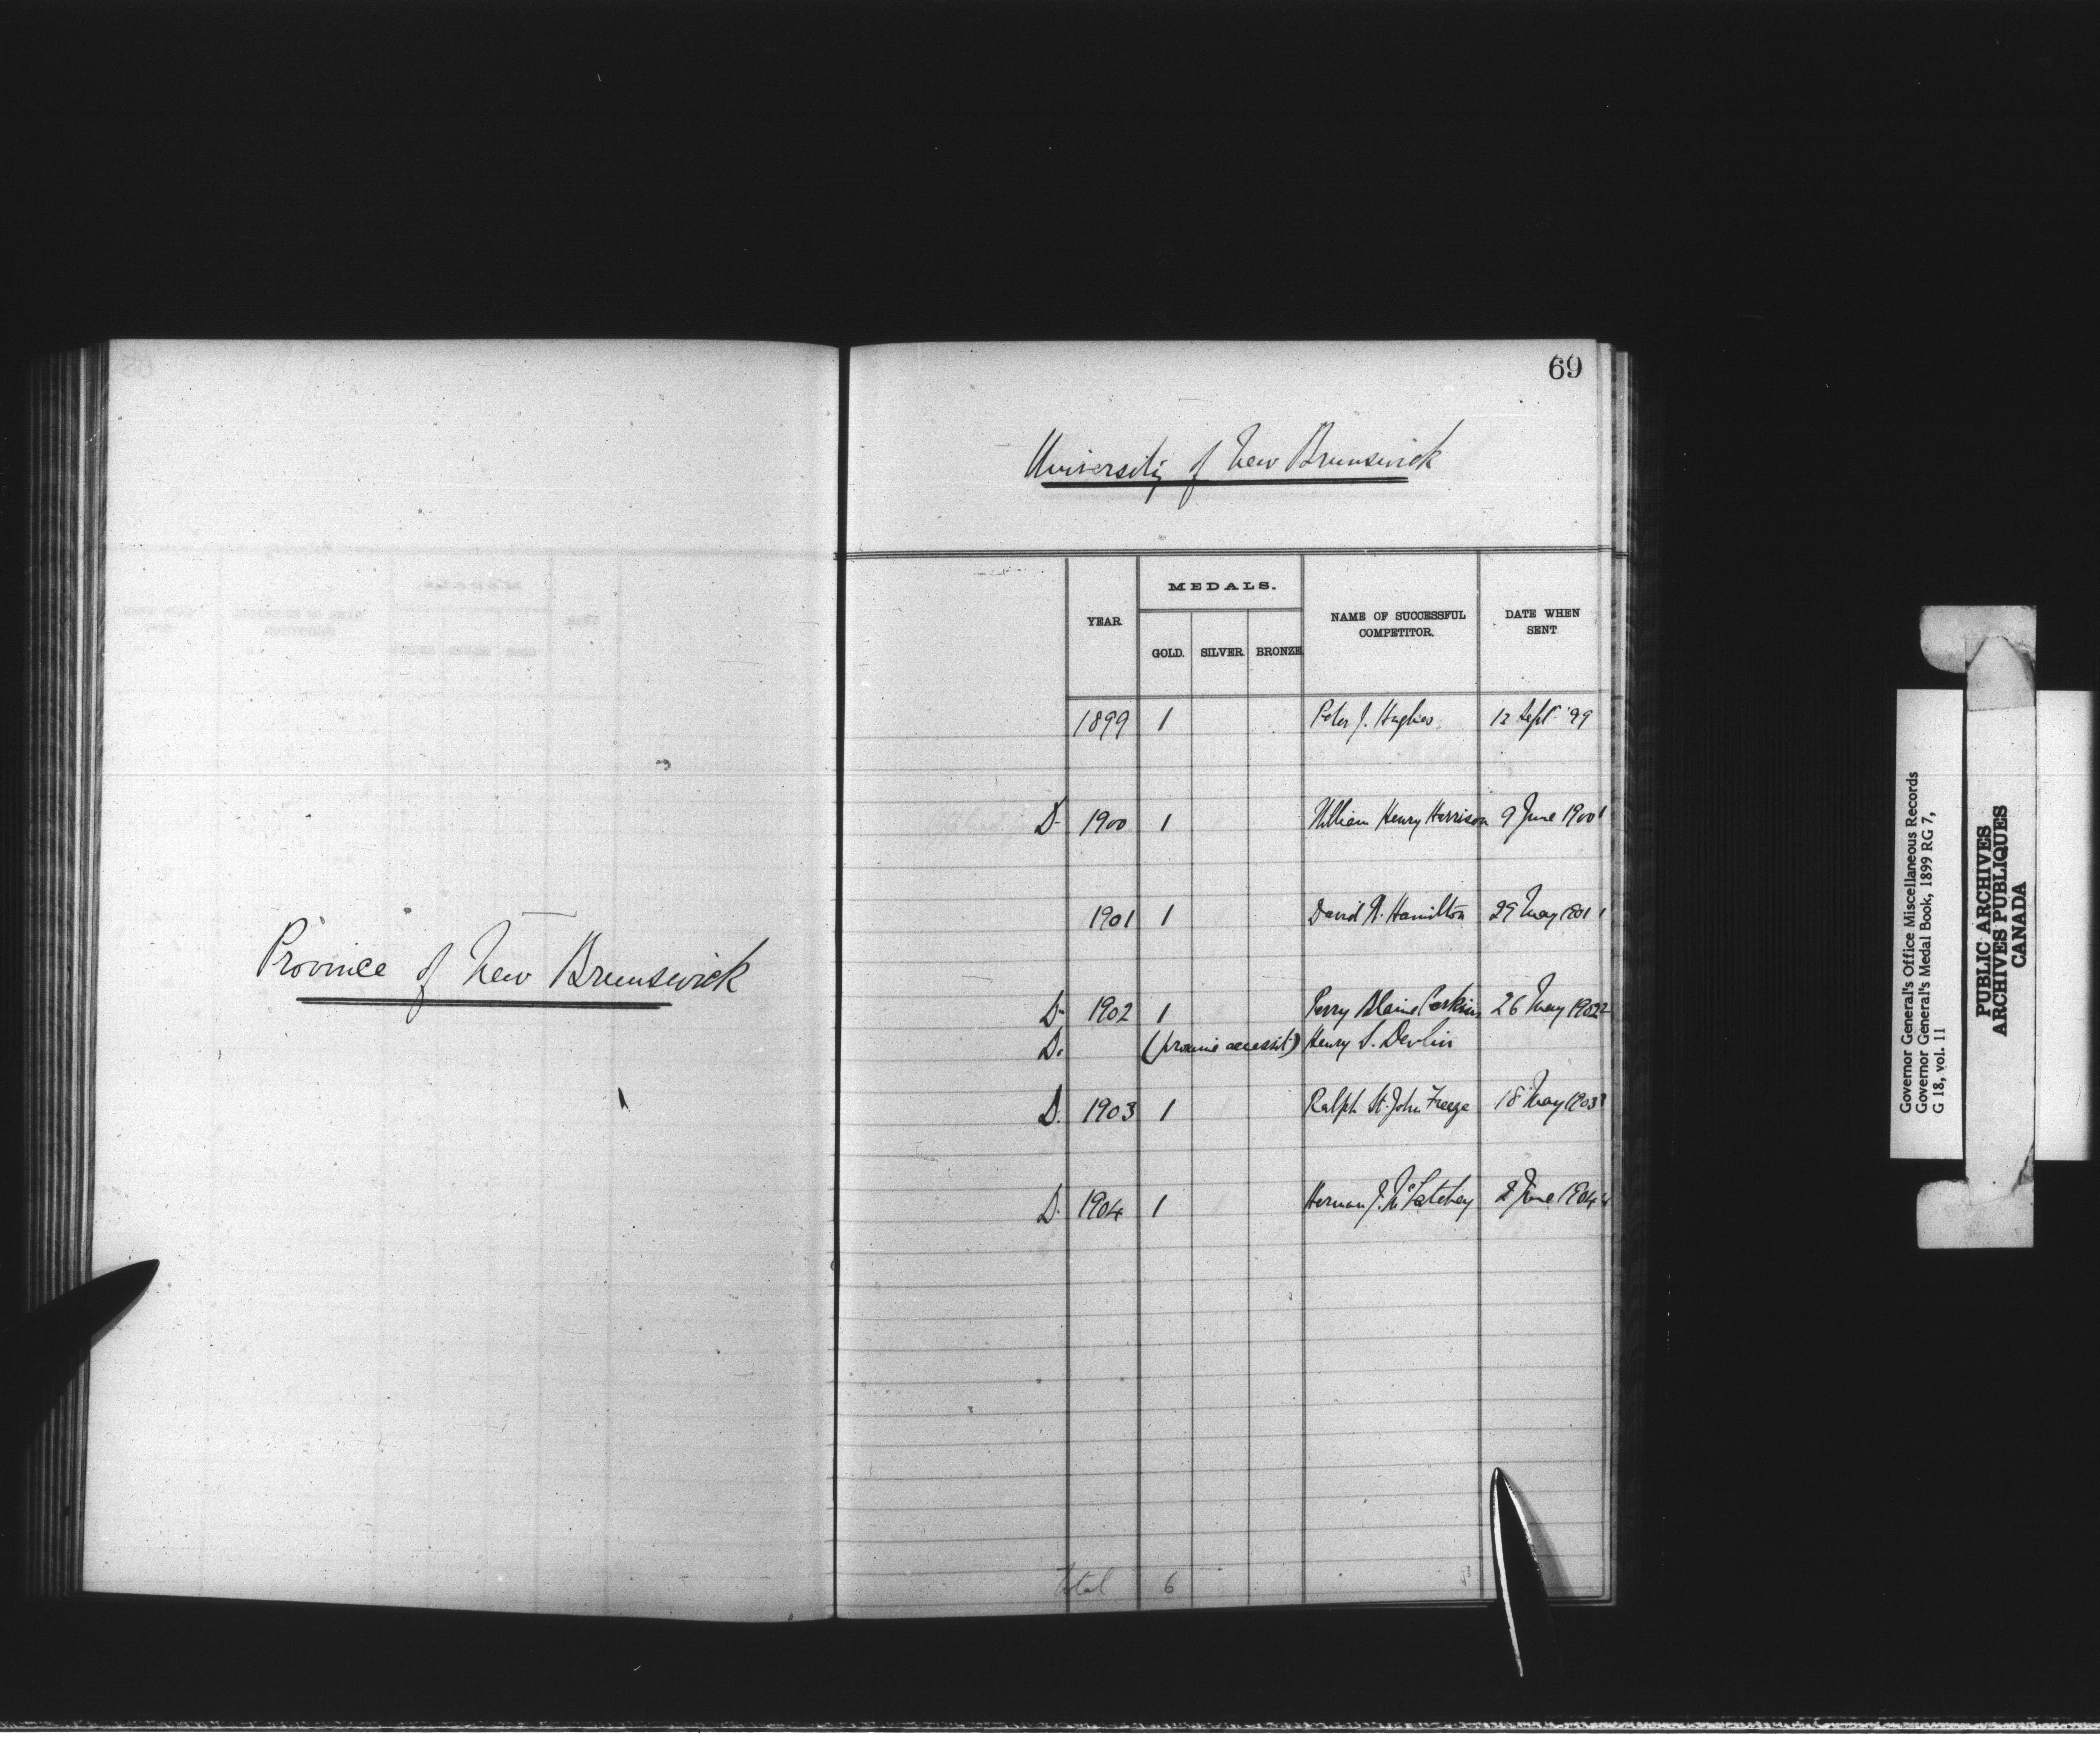 Province of New Brunswick
69
University of New Brunswick
YEAR
MEDALS.
GOLD. SILVER. BRONZE.
NAME OF SUCCESSFUL COMPETITOR.
DATE WHEN SENT
1899 1 Peter J. Hughes. 12 Sept '99
D- 1900 1 William Henry Harrison 9 June 1900
1901 1 David W. Hamilton 29 May 1901
D- 1902 1 Perry Blaine Perkins 26 May 1902
D. (proxime accessit) Henry S. Devlin
D. 1903 1 Ralph St. John Freeze 18 May 1903
D. 1904 1 Herman J. McLatchey 2 June 1904
Total 6
Governor General's Office Miscellaneous Records
Governor General's Medal Book, 1899 RG 7,
G 18, vol. 11
PUBLIC ARCHIVES
ARCHIVES PUBLIQUES
CANADA